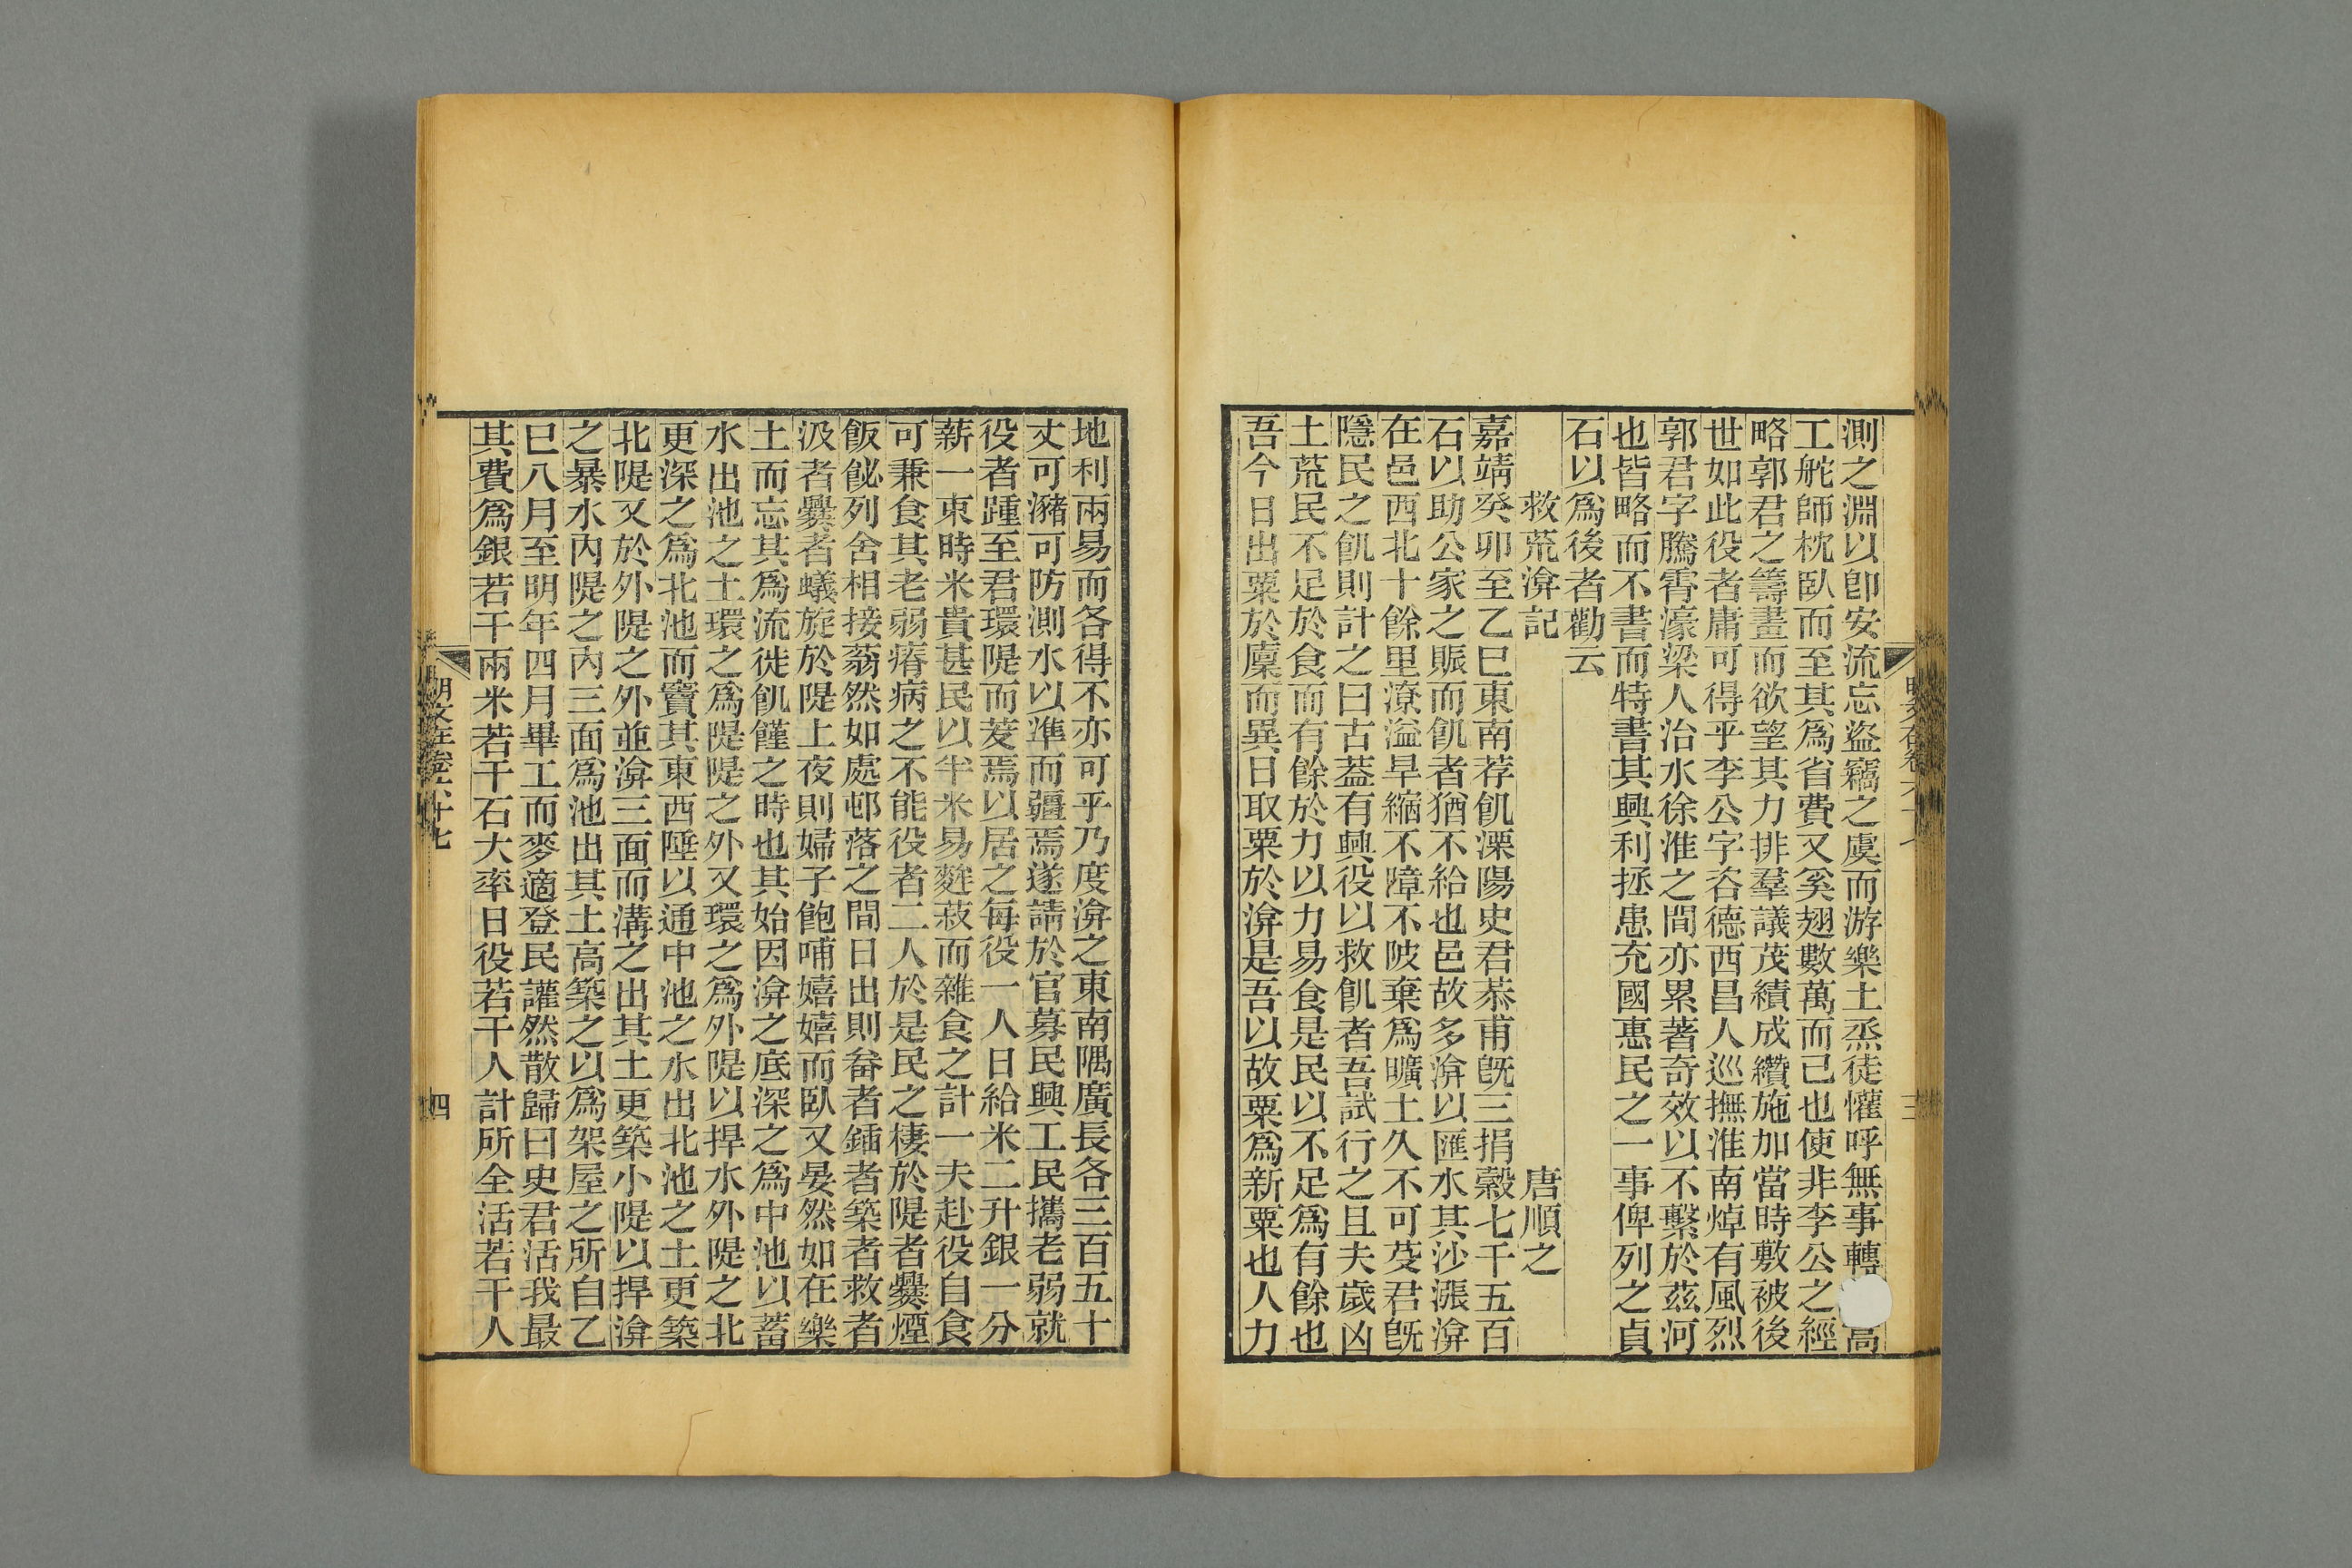 測之淵以卽安流忘盜竊之虞而游樂土烝徒懽呼無事轉高
工舵師枕臥而至其爲省費又奚翅數萬而已也使非李公之經
略郭君之籌畫而欲望其力排羣議茂績成纘施加當時敷被後
世如此役者庸可得乎李公字咨德西昌人巡撫淮南焯有風烈
郭君字騰霄濠梁人治水徐淮之間亦累著奇效以不繫於茲河
也皆略而不書而特書其興利拯患充國惠民之一事俾列之貞
石以爲後者勸云
救荒渰記
唐順之
嘉靖癸卯至乙巳東南荐飢溧陽史君恭甫旣三捐穀七千五百
石以助公家之賑而飢者猶不給也邑故多渰以匯水其沙漲渰
在邑西北十餘里潦溢旱縮不障不陂棄爲曠土久不可芟君旣
隱民之飢則計之曰古葢有興役以救飢者吾試行之且夫歲凶
土荒民不足於食而有餘於力以力易食是民以不足爲有餘也
吾今日出粟於廩而異日取粟於渰是吾以故粟爲新粟也人力
地利兩易而各得不亦可乎乃度渰之東南隅廣長各三百五十
丈可瀦可防測水以準而疆焉遂請於官募民興工民攜老弱就
役者踵至君環隄而茇焉以居之每役一人日給米二升銀一分
薪一束時米貴甚民以半米易麰菽而雜食之計一夫赴役自食
可兼食其老弱瘠病之不能役者二人於是民之棲於隄者爨煙
飯飶列舍相接蓊然如處邨落之間日出則畚者鍤者築者捄者
汲者爨者蟻旋於隄上夜則婦子飽哺嬉嬉而臥又晏然如在樂
土而忘其爲流徙飢饉之時也其始因渰之底深之爲中池以蓄
水出池之土環之爲隄隄之外又環之爲外隄以捍水外隄之北
更深之爲北池而竇其東西陲以通中池之水出北池之土更築
北隄又於外隄之外並渰三面而溝之出其土更築小隄以捍渰
之暴水內隄之內三面爲池出其土高築之以爲架屋之所自乙
巳八月至明年四月畢工而麥適登民讙然散歸曰史君活我最
其費爲銀若干兩米若干石大率日役若干人計所全活若干人
明文在卷六十七
四